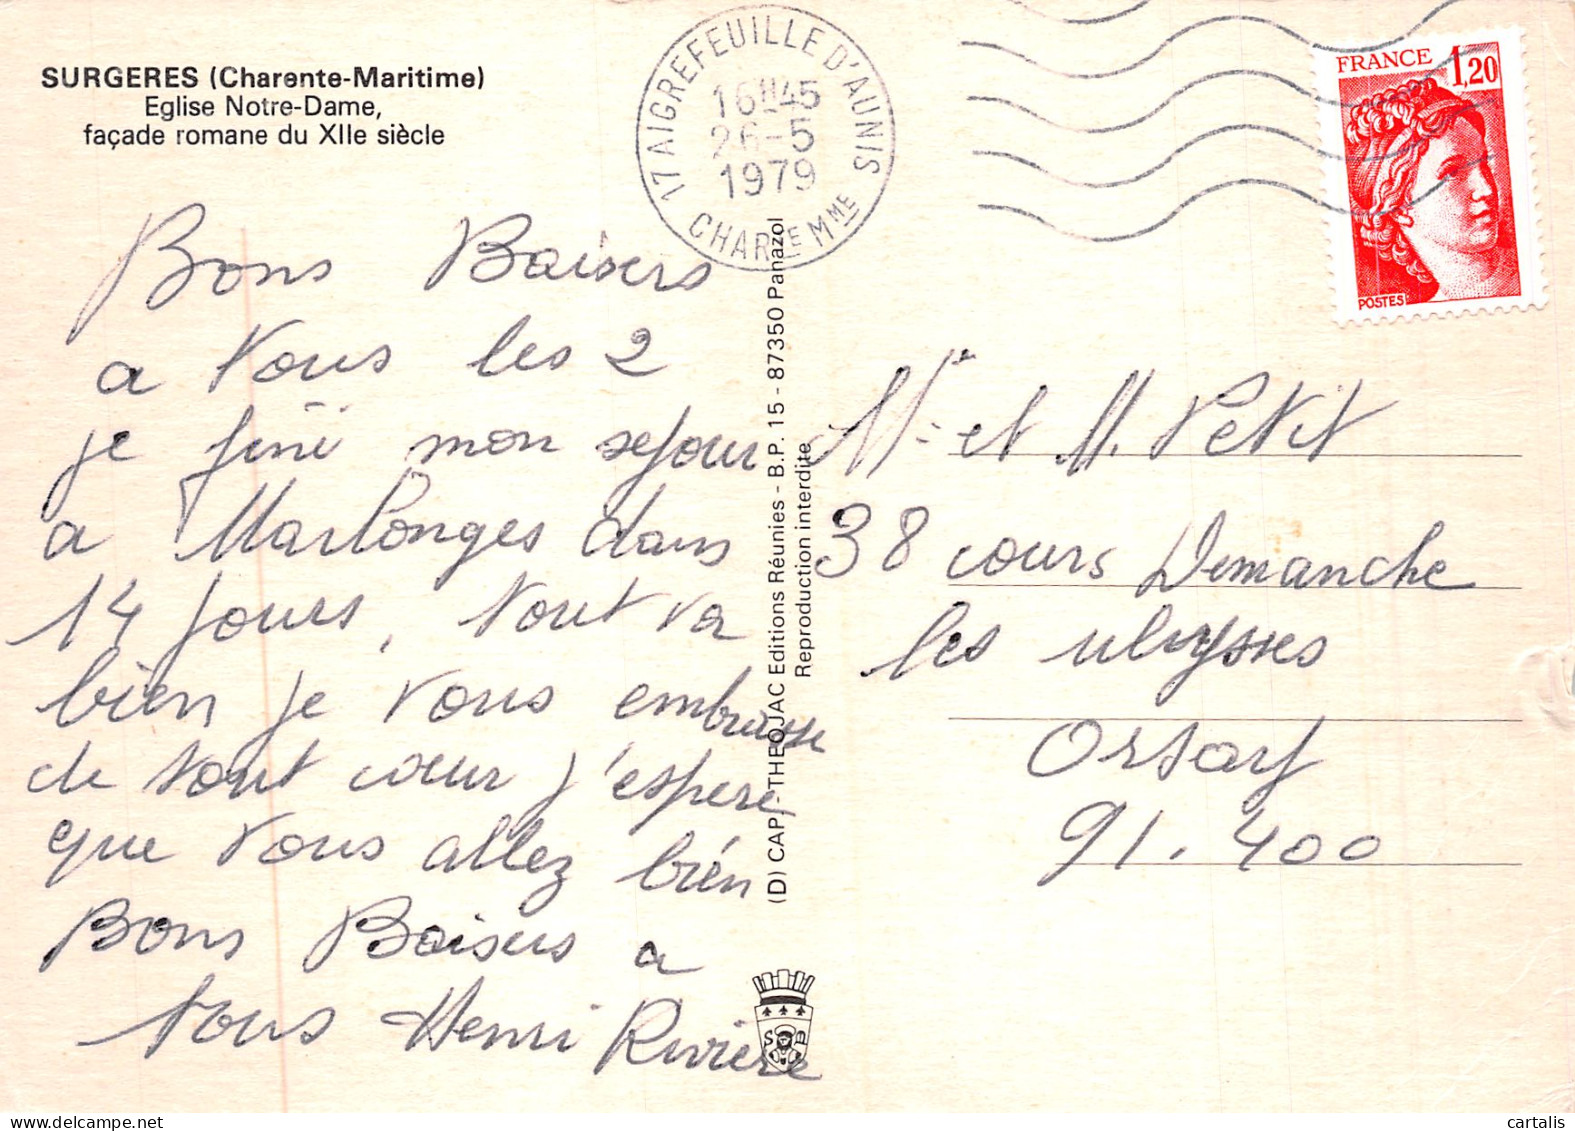 SURGERES (Charente-Maritime)
Eglise Notre-Dame,
façade romane du XIIe siècle
17 AIGREFEUILLE D'AUNIS
16H45
26-5
1979
CHARTE MME
FRANCE 1,20
POSTES
Bons Baisers
a vous les 2
je fini mon sejour
a dans
14 jours, tout va
bien je vous embrasse
de tout cœur j'espere,
que vous allez bien
Bons Baisers a
tous Henri Rivière
(D) CAP-THEOJAC Editions Réunies - B.P. 15 - 87350 Panazol
Reproduction interdite
Mr et M. Petit
38 cours Demanche
les ulysses
Orsay
91.400
cartalis